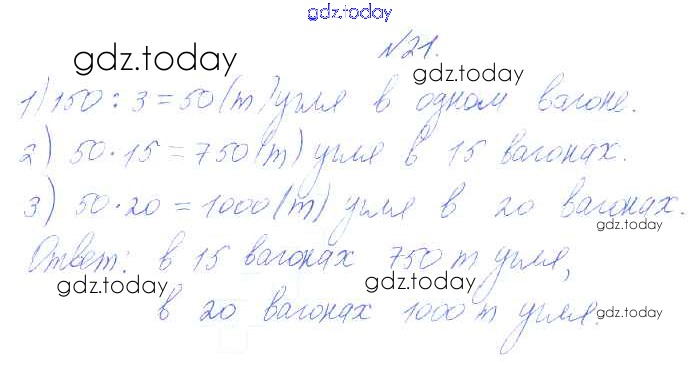 gdz.today
gdz.today
№21.
gdz.today
1) 150 : 3 = 50 (т) угля в одном вагоне.
2) 50 · 15 = 750 (т) угля в 15 вагонах.
3) 50 · 20 = 1000 (т) угля в 20 вагонах.
gdz.today
Ответ: в 15 вагонах 750 т угля,
gdz.today
gdz.today
в 20 вагонах 1000 т угля.
gdz.today